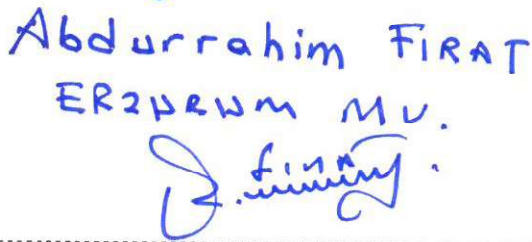 Abdurrahim FIRAT
ERZURUM MV.